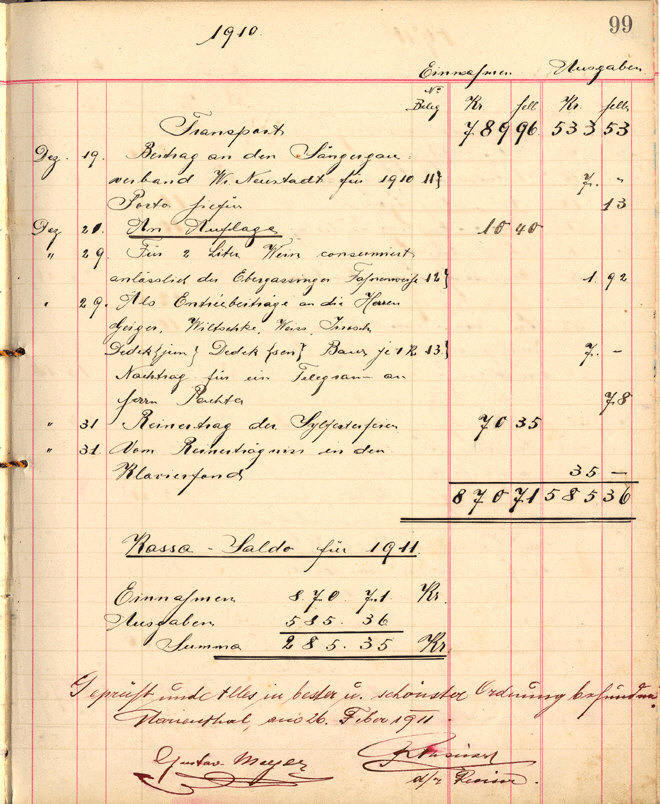 99
1910.
Einnahmen Ausgaben
No Beleg Kr. hell Kr. hell.
Transport 789 96 533 53
Dez. 19. Beitrag an den Sängergau-
verband Wr. Neustadt für 1910 11} 7. "
Porto hiefür 13
Dez 20. An Auflage 10 40
" 29. Für 2 Liter Wein consumiert
anlässlich der Ebergassinger Fahnenweihe 12} 1. 92
" 29. Als Entréebeträge an die Herren
Geiger, Wiltschke, Weiss,
Dedek {jun} Dedek {sen} Bauer je 1 K 13} 7. –
Nachtrag für ein Telegram an
Herrn Pachta 78
" 31 Reinertrag der Sylfesterfeier 70 35
" 31. Vom Reinerträgniss in den
Klavierfond 35 –
870 71 585 36
Kassa-Saldo für 1911.
Einnahmen 870. 71. Kr.
Ausgaben 585. 36
Summa 285. 35 Kr
Geprüft und Alles in bester u. schönster Ordnung befunden.
Marienthal, am 26. Feber 1911.
Gustav Meyer
d/z Revisor.